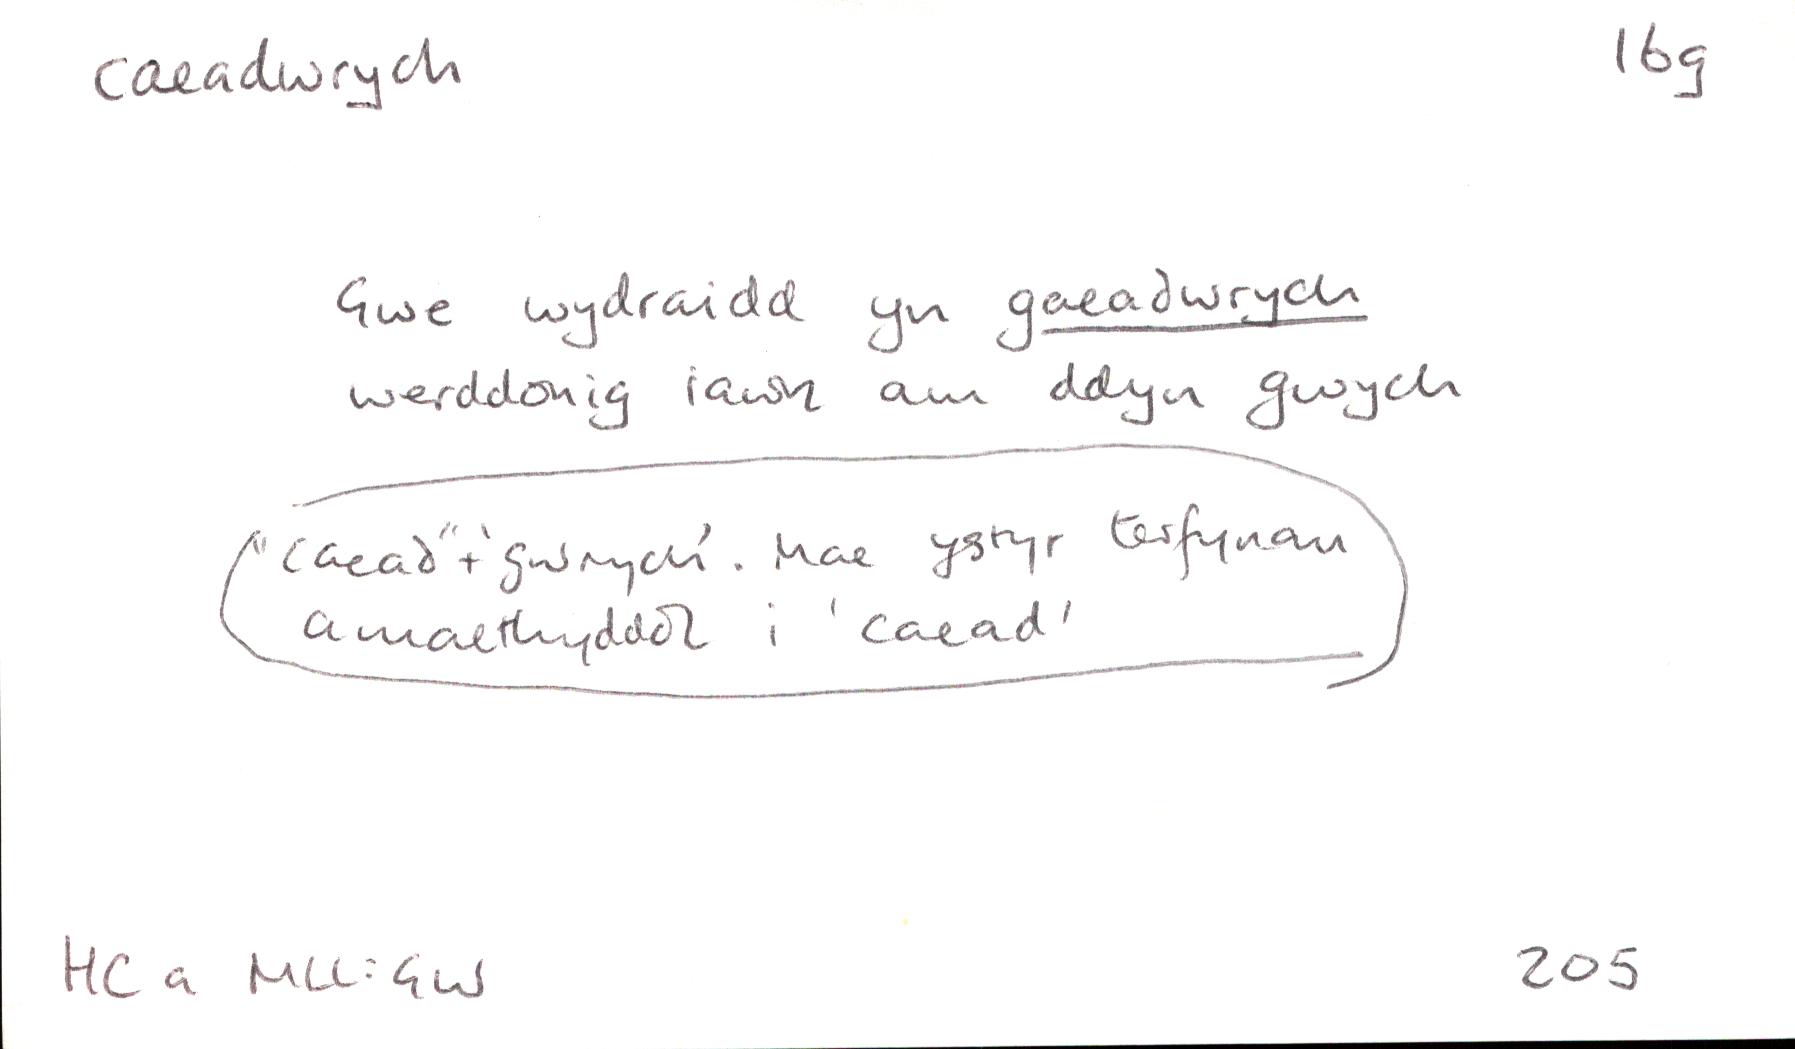 caeadwrych 16g
Gwe wydraidd yn gaeadwrych
werddonig iawn am ddyn gwych
"caead"+'gwrych'. Mae ystyr terfynau
amaethyddol i 'caead'
HC a MLl: GW 205